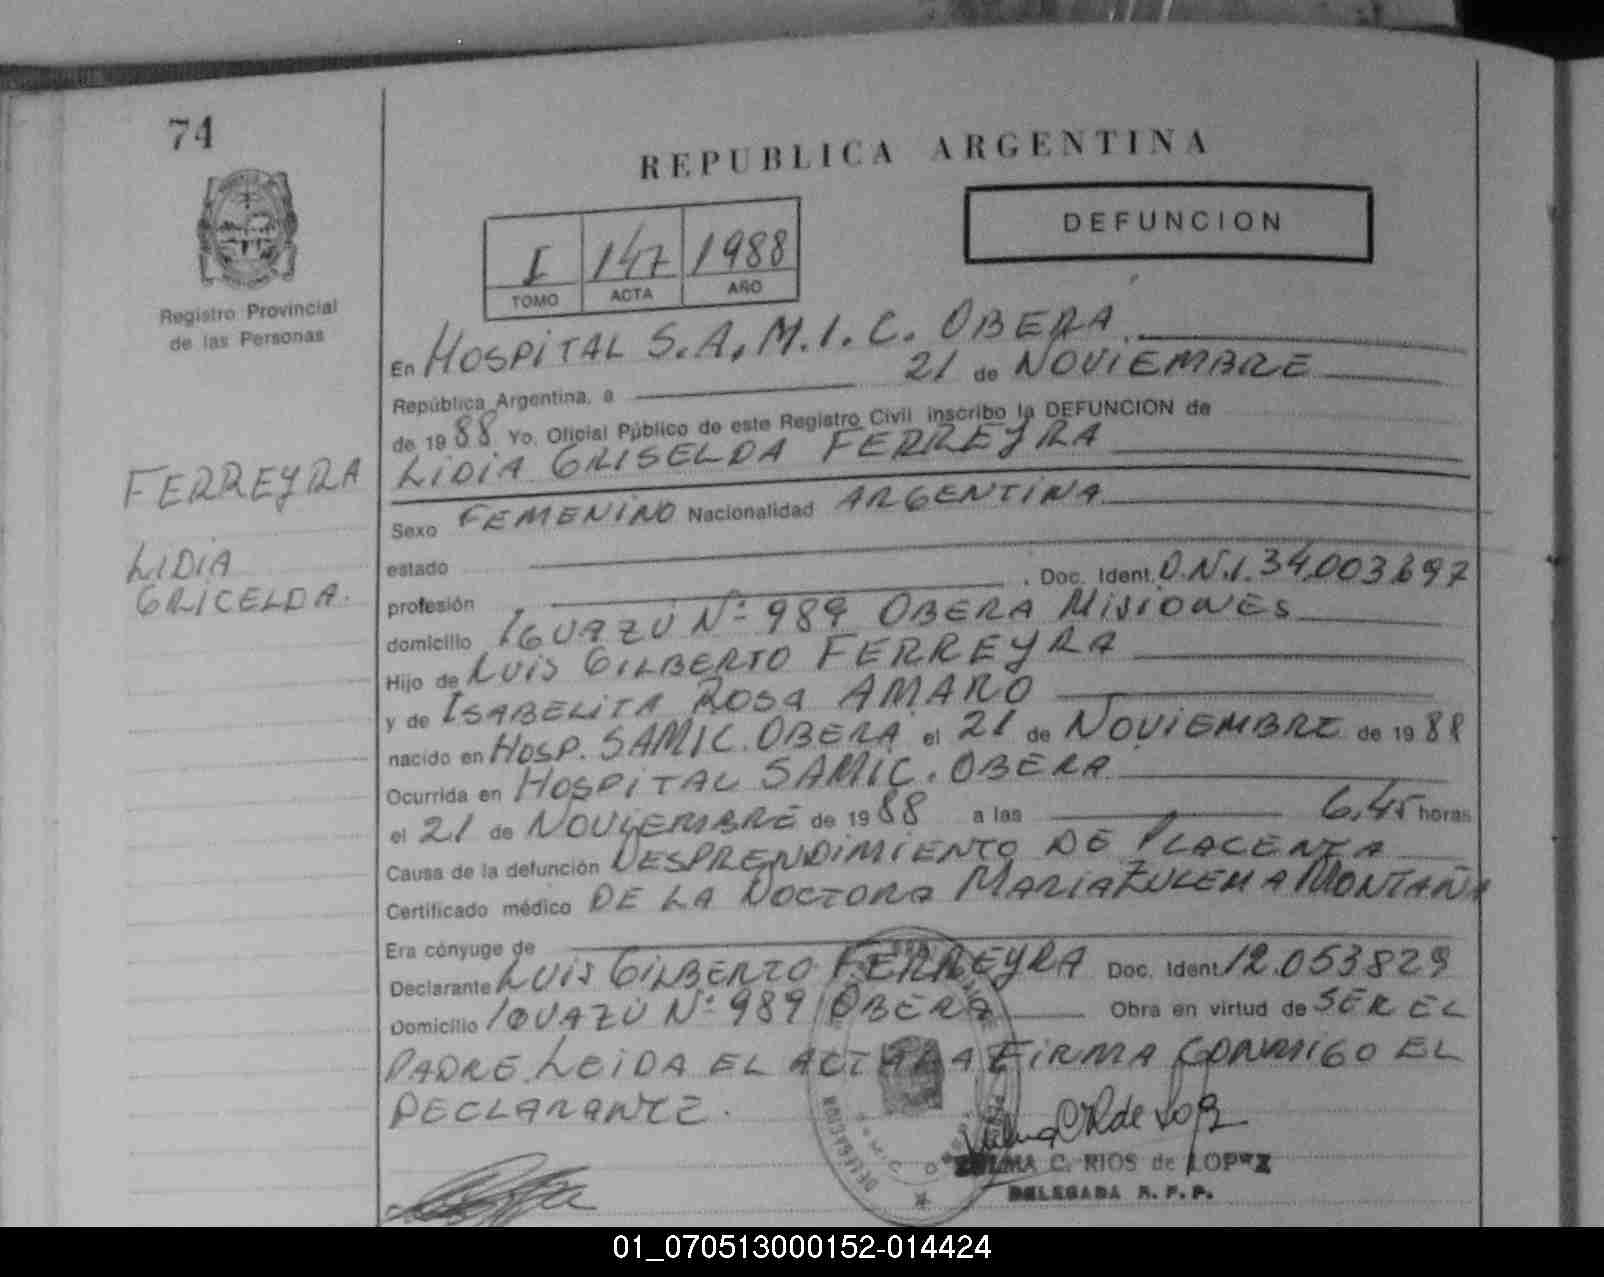 74
REPUBLICA ARGENTINA
DEFUNCION
I 147 1988
TOMO ACTA AÑO
Registro Provincial
de las Personas
En HOSPITAL S.A.M.I.C. OBERA
República Argentina, a 21 de NOVIEMBRE
de 1988 Yo, Oficial Público de este Registro Civil inscribo la DEFUNCION de
LIDIA GRISELDA FERREYRA
FERREYRA
LIDIA
GRICELDA.
Sexo FEMENINO Nacionalidad ARGENTINA
estado
profesión . Doc. Ident. D.N.I. 34.003.697
domicilio IGUAZU Nº 989 OBERA MISIONES
Hijo de LUIS GILBERTO FERREYRA
y de ISABELITA ROSA AMARO
nacido en HOSP. SAMIC. OBERA el 21 de NOVIEMBRE de 1988
Ocurrida en HOSPITAL SAMIC. OBERA
el 21 de NOVIEMBRE de 1988 a las 6,45 horas
Causa de la defunción DESPRENDIMIENTO DE PLACENTA
Certificado médico DE LA DOCTORA MARIA ZULEMA MONTAÑA
Era cónyuge de
Declarante LUIS GILBERTO FERREYRA Doc. Ident. 12.053.829
Domicilio IGUAZU Nº 989 OBERA Obra en virtud de SER EL
PADRE. LEIDA EL ACTA LA FIRMA CONMIGO EL
DECLARANTE.
C. RIOS de LOPEZ
DELEGADA R. P. P.
DELEGACION
01_070513000152-014424